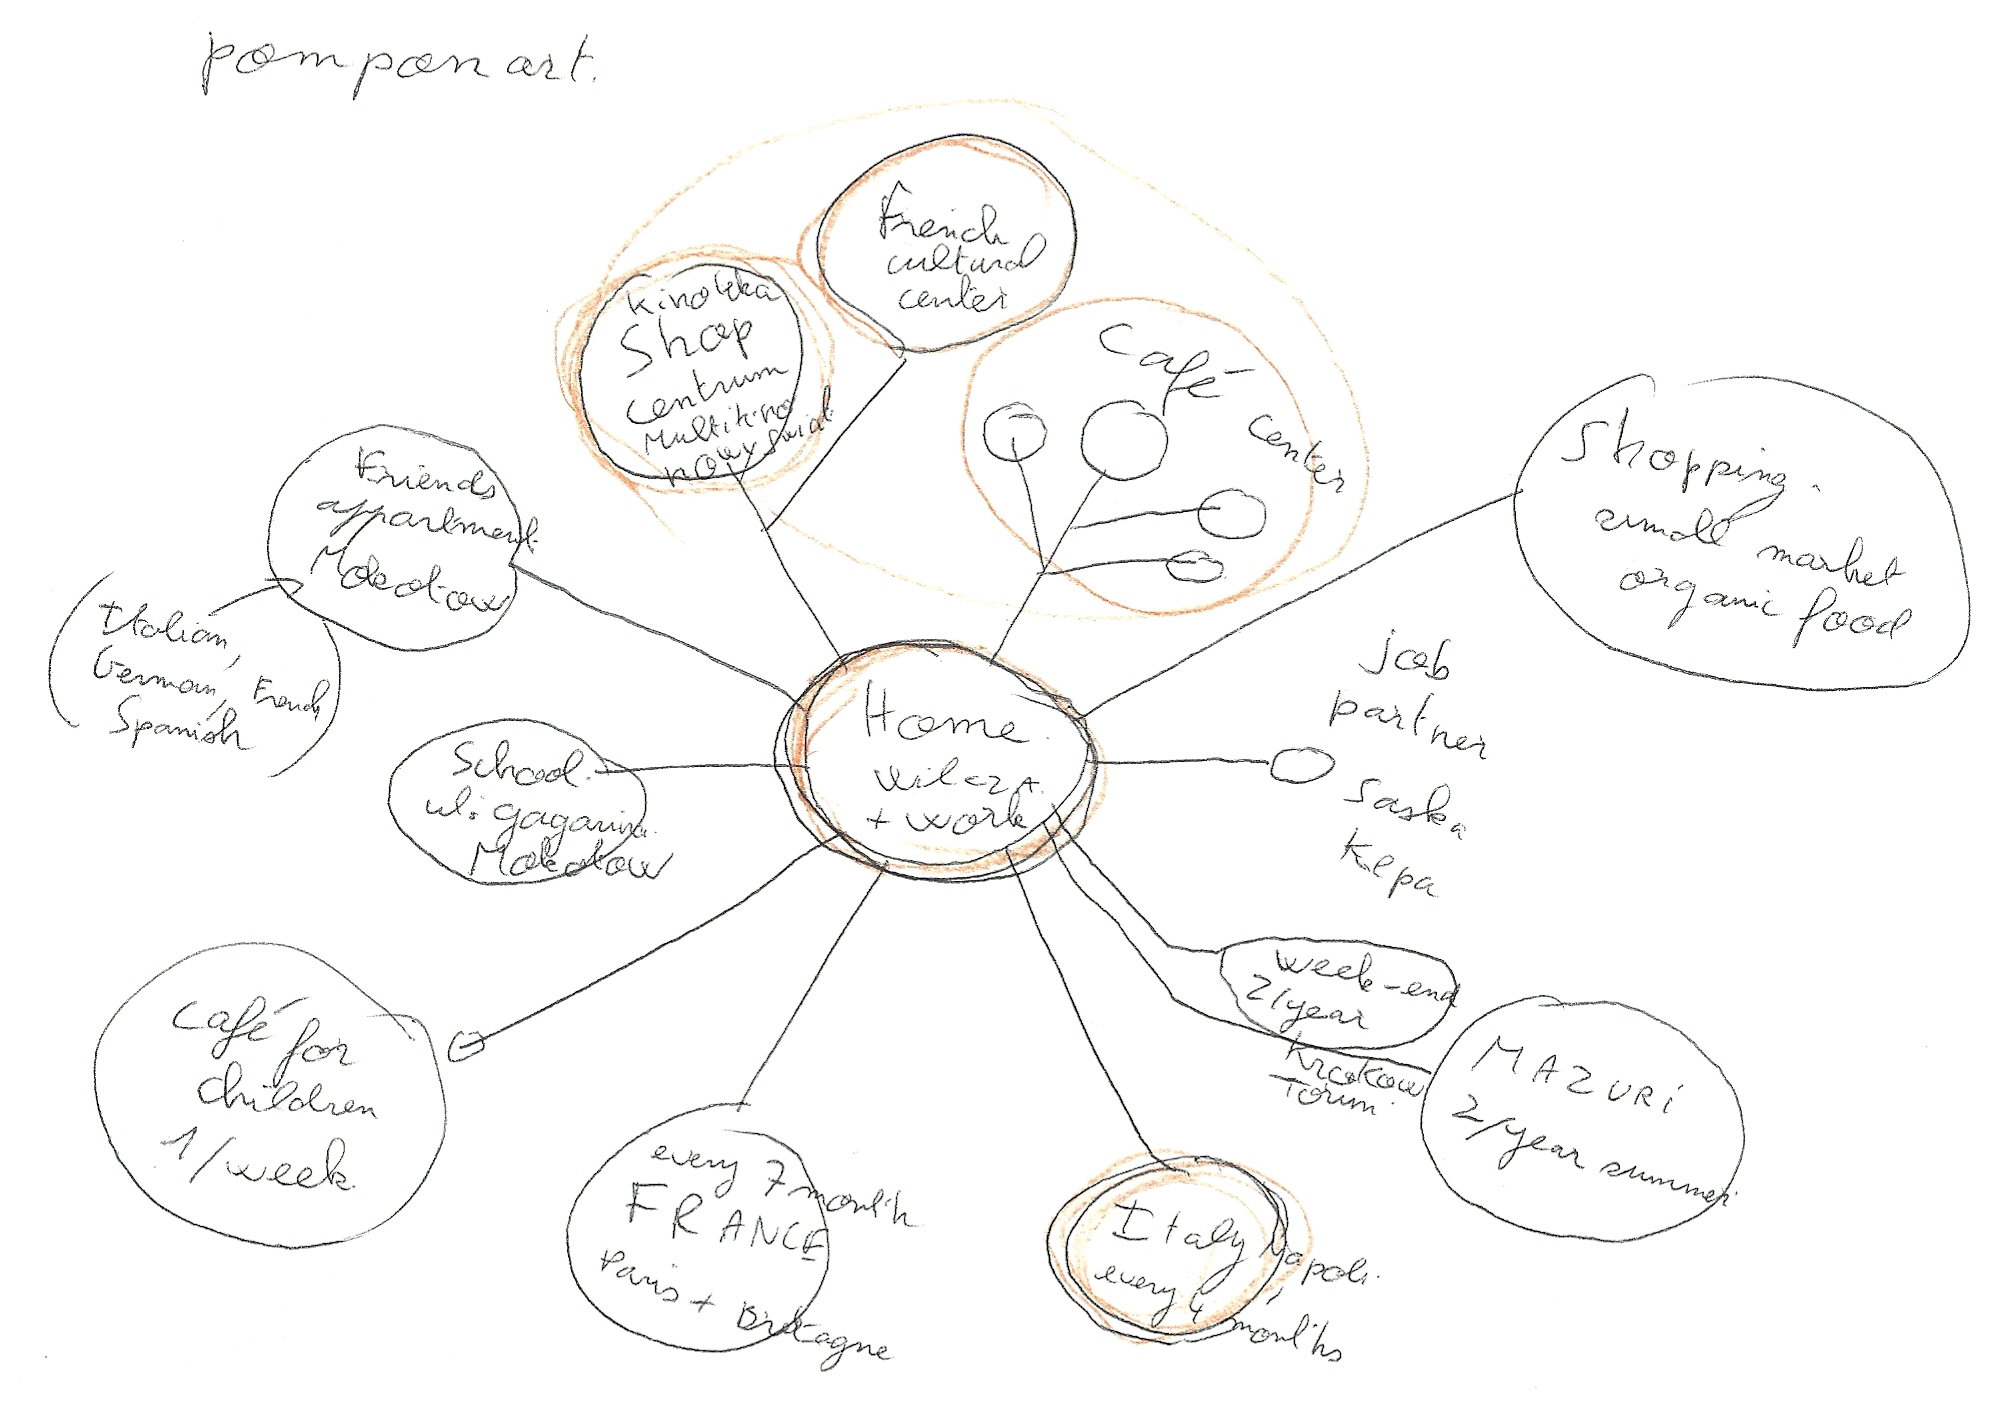 pomponart.
French
cultural
center
Kinoteka
Shop
centrum
Multikino
nowy świat
Café
center
Shopping.
small market
organic food
Friends
appartment
Mokotow
Italian,
German, French
Spanish
School.
ul. gagarina.
Mokotow
Home.
wilcza.
+ work
job
partner
Saska
Kepa
café for
children
1/week
every 7 month
FRANCE
Paris + Bretagne
Italy Napoli.
every 4 months
week-end
2/year
Krakow
Torun.
MAZURI
2/year summer